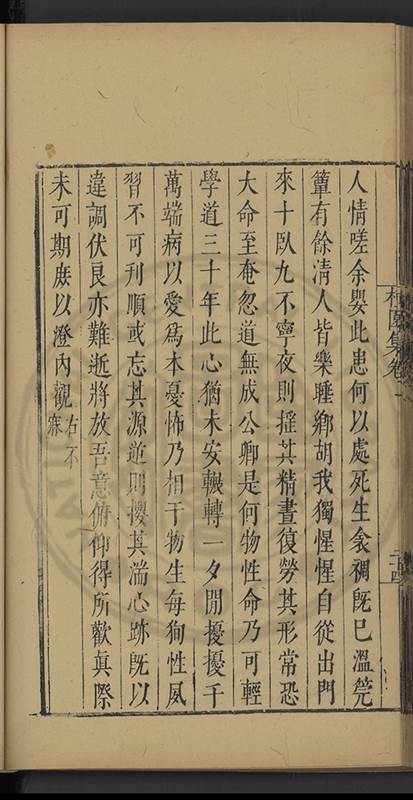 人情嗟余嬰此患何以處死生衾裯既已溫筦
簟有餘清人皆樂睡鄉胡我獨惺惺自從出門
來十臥九不寧夜則搖其精晝復勞其形常恐
大命至奄忽道無成公卿是何物性命乃可輕
學道三十年此心猶未安輾轉一夕間擾擾千
萬端病以愛爲本憂怖乃相干物生每狥性夙
習不可刋順或忘其源逆則攖其湍心跡既以
違調伏良亦難逝將放吾意俯仰得所歡眞際
未可期庶以澄內觀右不寐
集卷
二十四